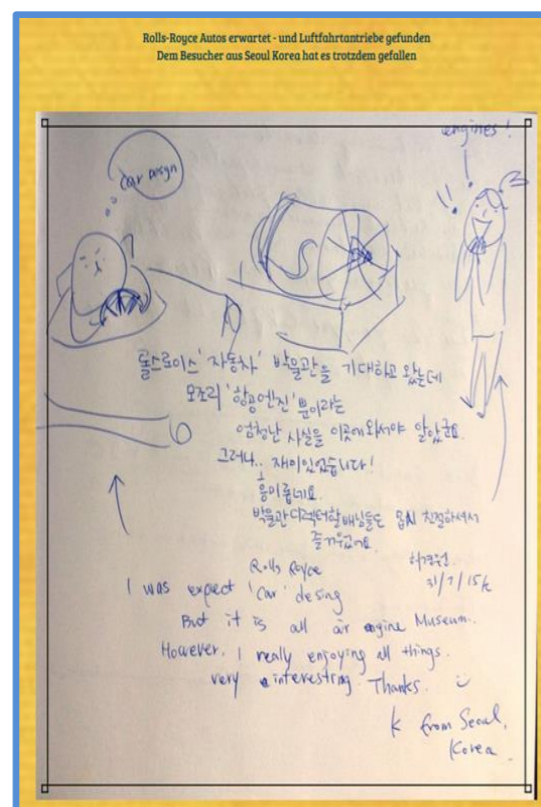 Rolls-Royce Autos erwartet - und Luftfahrtantriebe gefunden
Dem Besucher aus Seoul Korea hat es trotzdem gefallen
engines!
car desgn
롤스로이스 '자동차' 박물관을 기대하고 왔는데
모조리 '항공엔진' 뿐이라는
엄청난 사실을 이곳에 와서야 알았군요.
그러나.. 재미있었습니다!
흥미롭네요.
박물관 디렉터 할배님들도 몹시 친절하셔서
즐거웠어요.
허경원
Rolls Royce
31/7/15
I was expect 'car' desing
But it is all air engine Museum.
However, I really enjoying all things.
very interesting. Thanks.
K from Seoul,
Korea.